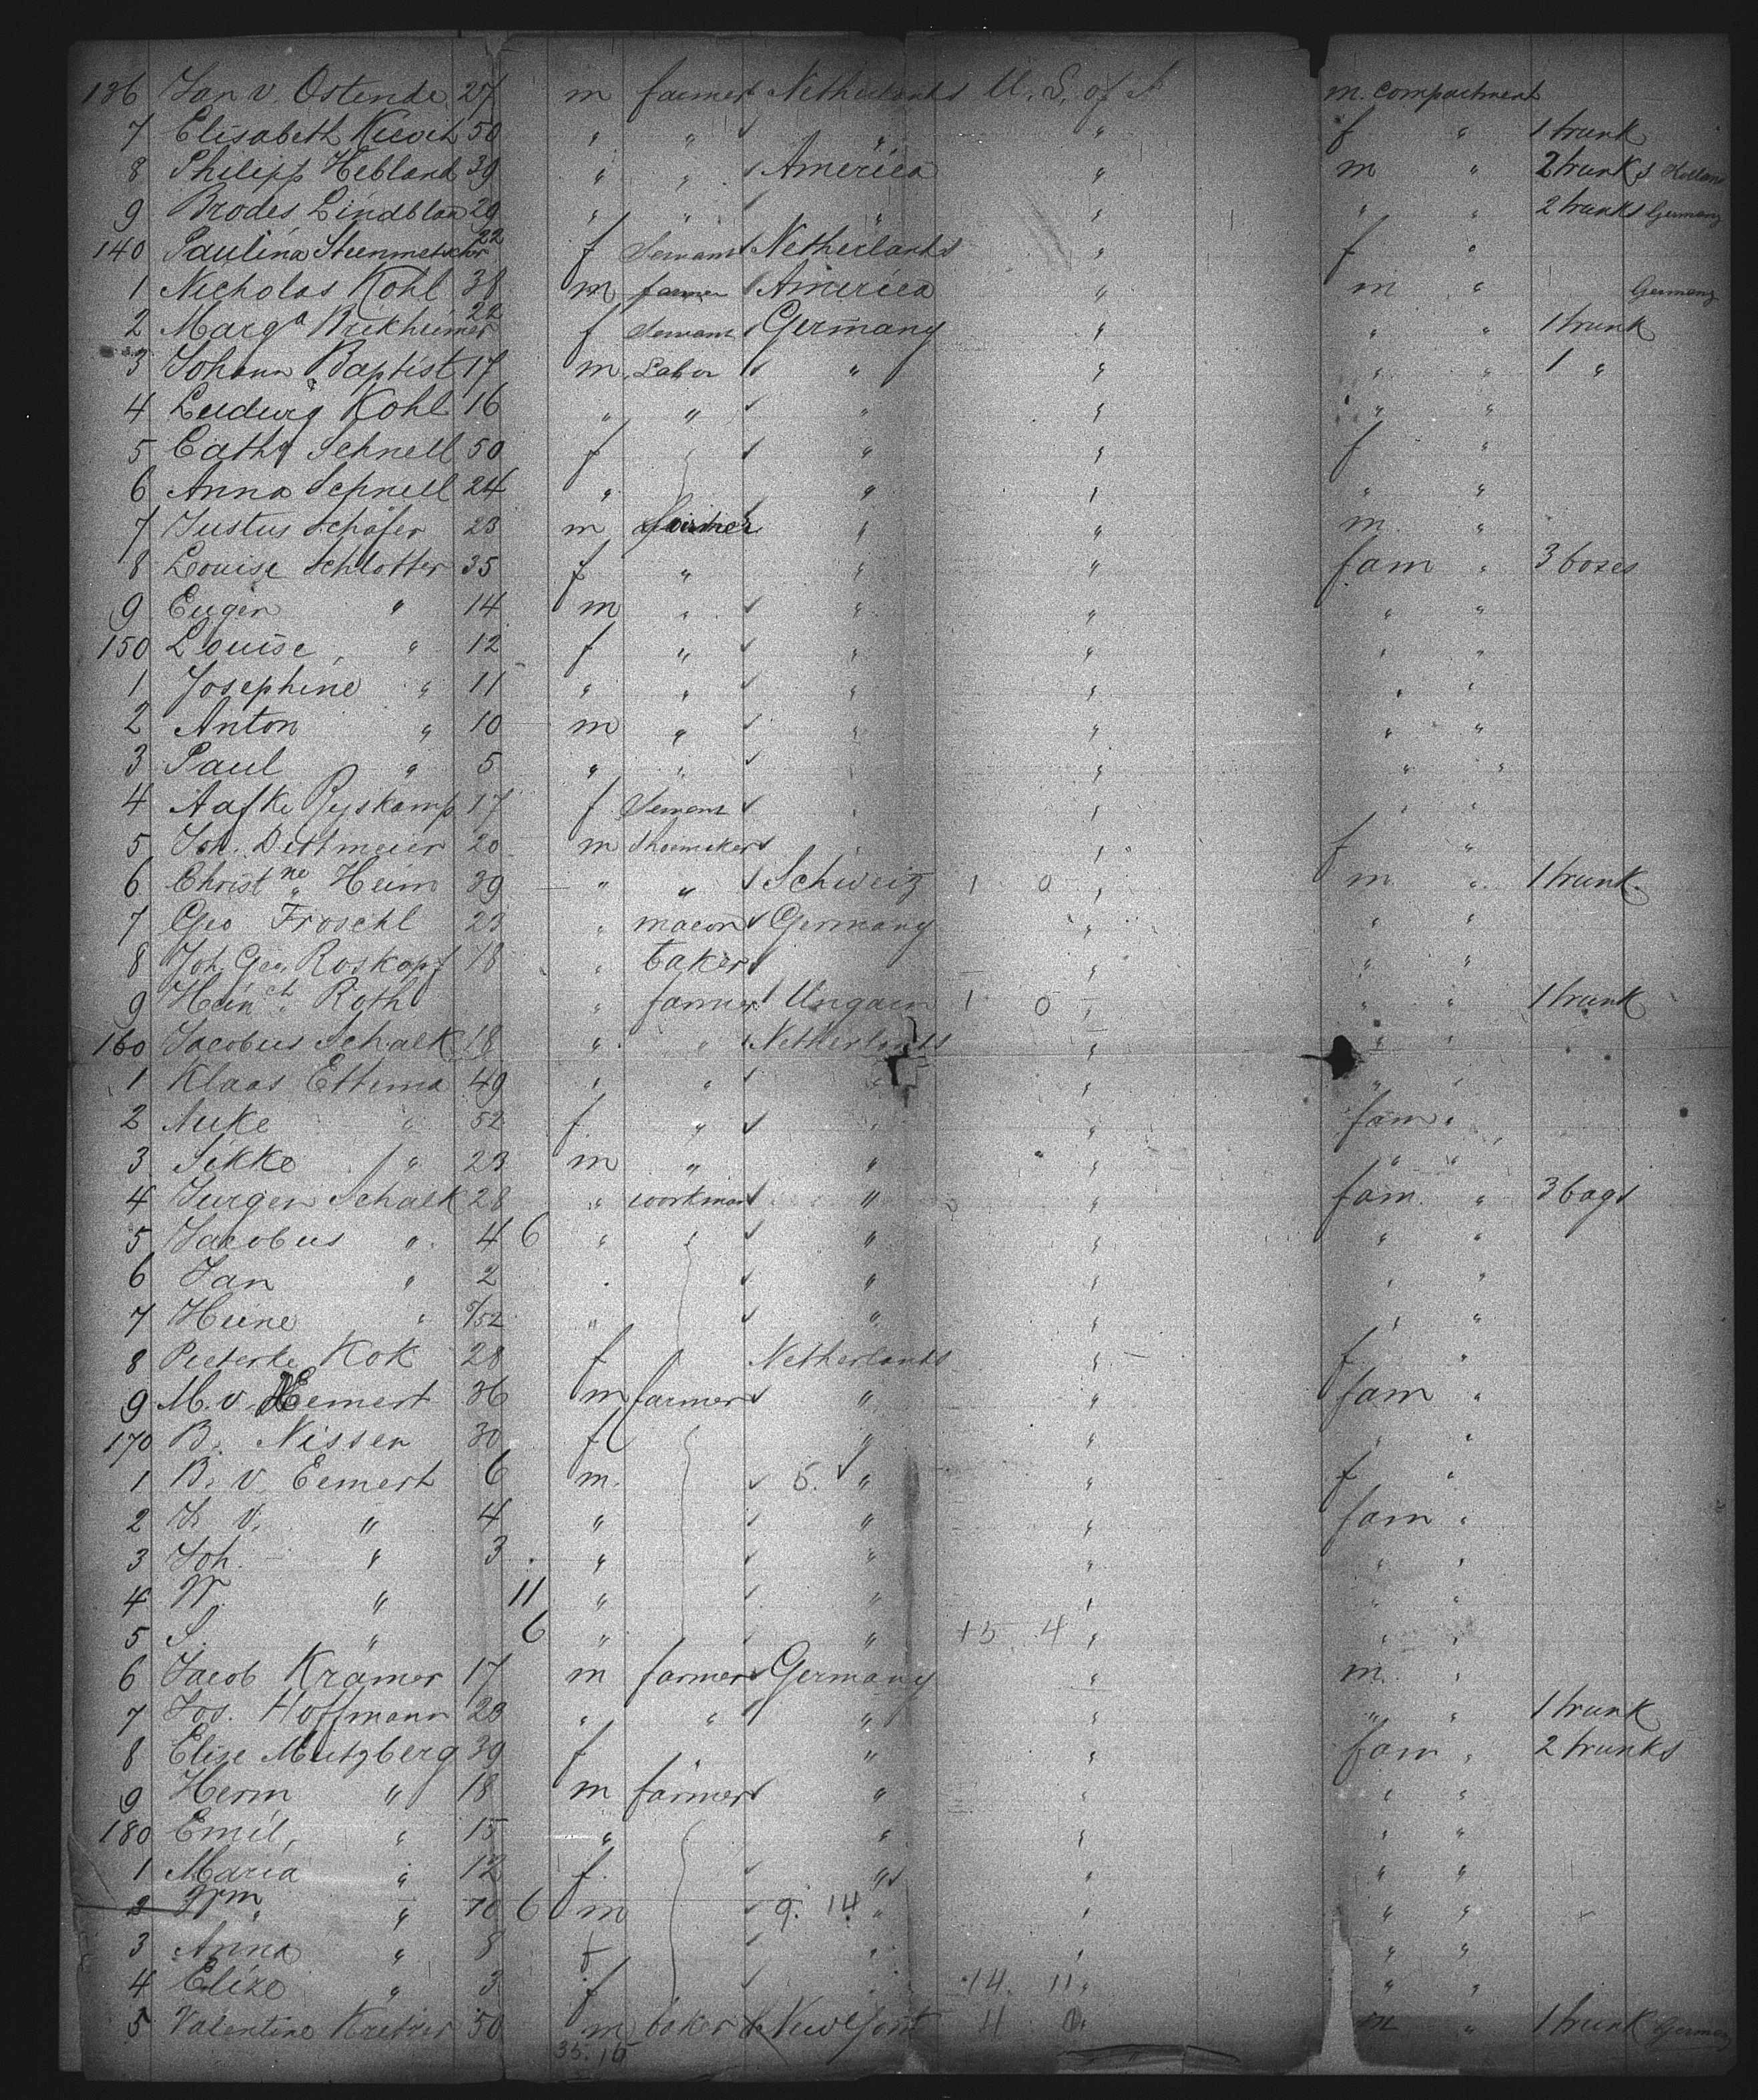 136 Jan v. Ostende 27 m farmer Netherlands U. S. of A m. compartment
7 Elisabeth 50 " " " " f " 1 trunk
8 Philipp Hebland 39 " " America " m " 2 trunks Holland
9 Brodes Lindblad 29 " " " " " " 2 trunks Germany
140 Paulina 22 f Servant Netherlands " f "
1 Nicholas Kohl 38 m farmer America " m " Germany
2 Marga 22 f Servant Germany " " " 1 trunk
3 Johann Baptist 17 m Labor " " " " 1 "
4 Ludwig Kohl 16 " " " " " "
5 Cath Schnell 50 f " " f "
6 Anna Schnell 24 " " " " "
7 Justus Schäfer 23 m farmer " " m "
8 Louise Schlotter 35 f " " " fam " 3 boxes
9 Eugen " 14 m " " " " "
150 Louise " 12 f " " " " "
1 Josephine " 11 " " " " " "
2 Anton " 10 m " " " " "
3 Paul " 5 " " " " " "
4 Aafke Ryskamp 17 f Servant " " " "
5 Joh. Dittmeier 20 m Shoemaker " " f "
6 Christne Heim 39 " " Schweiz 1 0 " m " 1 trunk
7 Geo Froschl 23 " macon Germany " " "
8 Joh. Geo. Roskopf 18 " baker " " "
9 Heinch Roth " farmer Ungarn 1 0 " " " 1 trunk
160 Jacobus Schalk 18 " " Netherlands " " "
1 Klaas Ettema 49 " " " " " "
2 Auke " 52 f " " " fam "
3 Sikke " 23 m " " " " "
4 Jurgen Schalk 28 " workman " " fam. " 3 bags
5 Jacobus " 4 6 " " " " "
6 Jan " 2 " " " " "
7 Heine " 5/52 " " " " "
8 Pieterke Kok 28 f Netherlands " f "
9 M. v. Eemert 36 m farmer " " fam "
170 B. Nissen 30 f " " " "
1 B. v. Eemert 6 m. 5. " " f "
2 J. v. " 4 " " " fam "
3 Joh. " 3 " " " " "
4 W. " 11 " " " " "
5 S. " 6 " " 15 4 " " "
6 Jacob Kramer 17 m farmer Germany " m. "
7 Jos. Hoffmann 23 " " " " " " 1 trunk
8 Elise Mutzberg 39 f " " " fam " 2 trunks
9 Herm " 18 m farmer " " " "
180 Emil, " 15 " " " " "
1 Maria " 12 f. " " " "
2 Wm " 10 6 m 9. 14 " " " "
3 Anna " 8 f " " " "
4 Elize " 3 f " 14. 11 " " "
5 Valentine 50 m baker New York 4 0 " m " 1 trunk Germany
35. 15